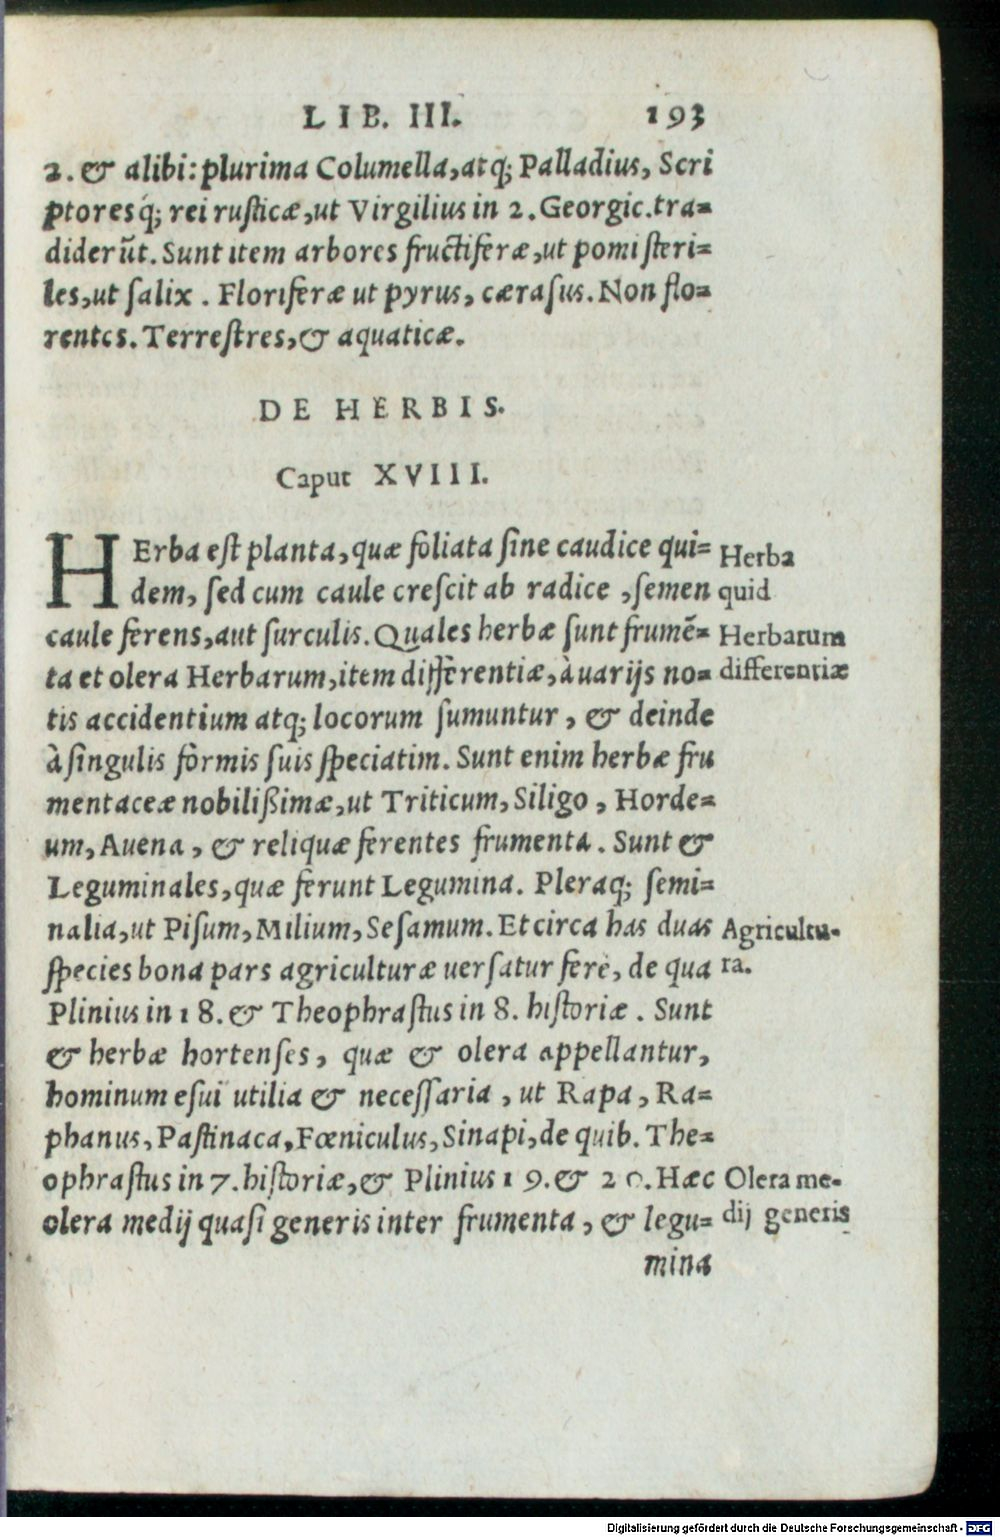 LIB. III. 193
2. & alibi: plurima Columella, atq; Palladius, Scri
ptoresq́; rei rusticæ, ut Virgilius in 2. Georgic. tra=
diderũt. Sunt item arbores fructiferæ, ut pomi steri=
les, ut salix. Floriferæ ut pyrus, cærasus. Non flo=
rentes. Terrestres, & aquaticæ.
DE HERBIS.
Caput XVIII.
HErba est planta, quæ foliata sine caudice qui=
dem, sed cum caule crescit ab radice, semen
caule ferens, aut surculis. Quales herbæ sunt frumē=
ta et olera Herbarum, item differentiæ, à uarijs no=
tis accidentium atq; locorum sumuntur, & deinde
à singulis formis suis speciatim. Sunt enim herbæ fru
mentaceæ nobilißimæ, ut Triticum, Siligo, Horde=
um, Auena, & reliquæ ferentes frumenta. Sunt &
Leguminales, quæ ferunt Legumina. Pleraq; semi=
nalia, ut Pisum, Milium, Sesamum. Et circa has duas
species bona pars agriculturæ uersatur ferè, de qua
Plinius in 18. & Theophrastus in 8. historiæ. Sunt
& herbæ hortenses, quæ & olera appellantur,
hominum esui utilia & necessaria, ut Rapa, Ra=
phanus, Pastinaca, Fœniculus, Sinapi, de quib. The=
ophrastus in 7. historiæ, & Plinius 19. & 20. Hæc
olera medij quasi generis inter frumenta, & legu=
mina
Herba
quid
Herbarum
differentiæ
Agricultu-
ra.
Olera me-
dij generis
Digitalisierung gefördert durch die Deutsche Forschungsgemeinschaft - DFG